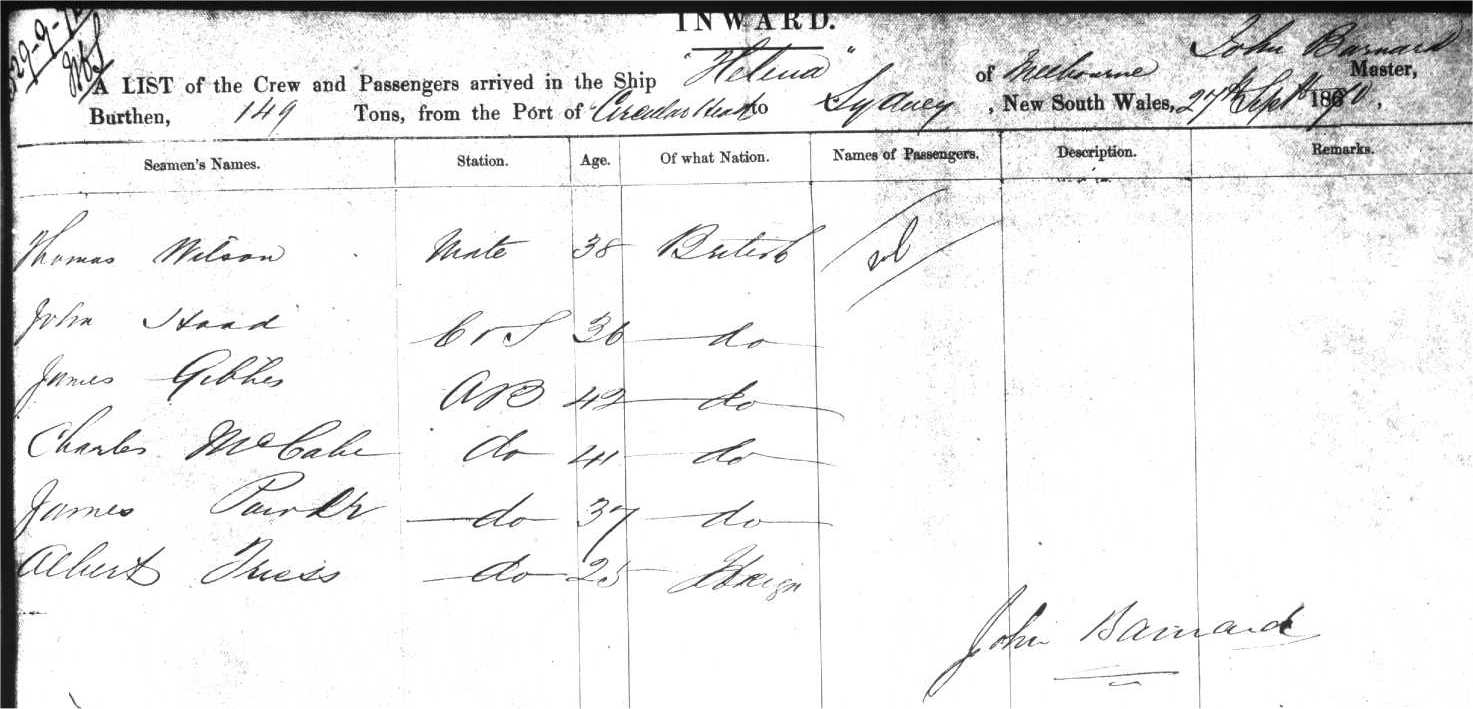 29-9-70
INWARD.
A LIST of the Crew and Passengers arrived in the Ship "Helena" of Melbourne John Barnard Master,
Burthen, 149 Tons, from the Port of Circular Head to Sydney, New South Wales, 27th Septr 1870,
Seamen's Names. Station. Age. Of what Nation. Names of Passengers. Description. Remarks.
Thomas Wilson Mate 38 British
John C & S 36 do
James Gibbes AB 42 do
Charles McCabe do 41 do
James do 37 do
Albert do 25
John Barnard